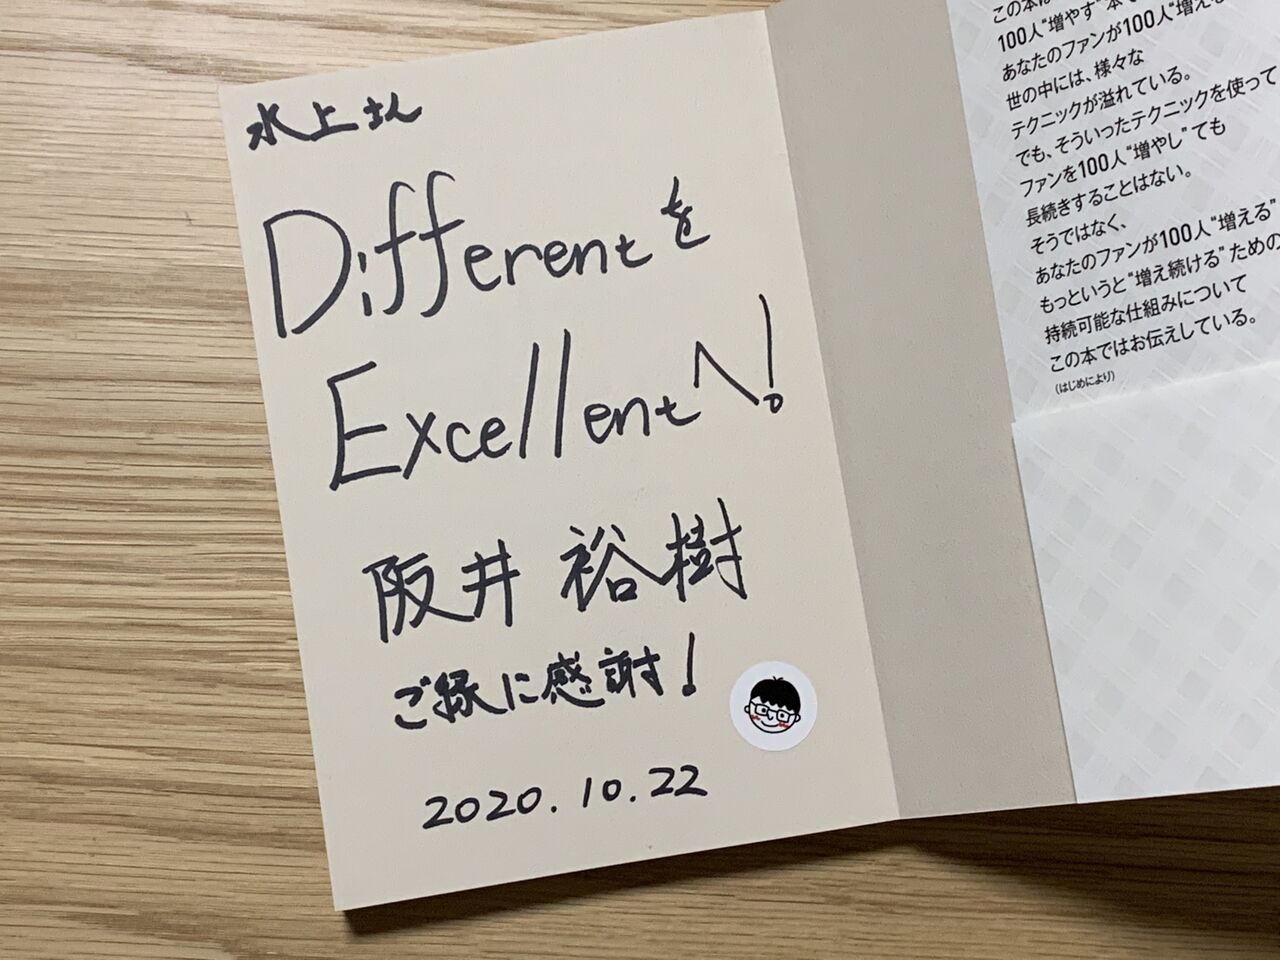 水上さん
Differentを
Excellentへ!
阪井 裕樹
ご縁に感謝!
2020.10.22
この本は
100人“増やす”本で
あなたのファンが100人“増える
世の中には、様々な
テクニックが溢れている。
でも、そういったテクニックを使って
ファンを100人“増やし”ても
長続きすることはない。
そうではなく、
あなたのファンが100人“増える”
もっというと“増え続ける”ための
持続可能な仕組みについて
この本ではお伝えしている。
(はじめにより)